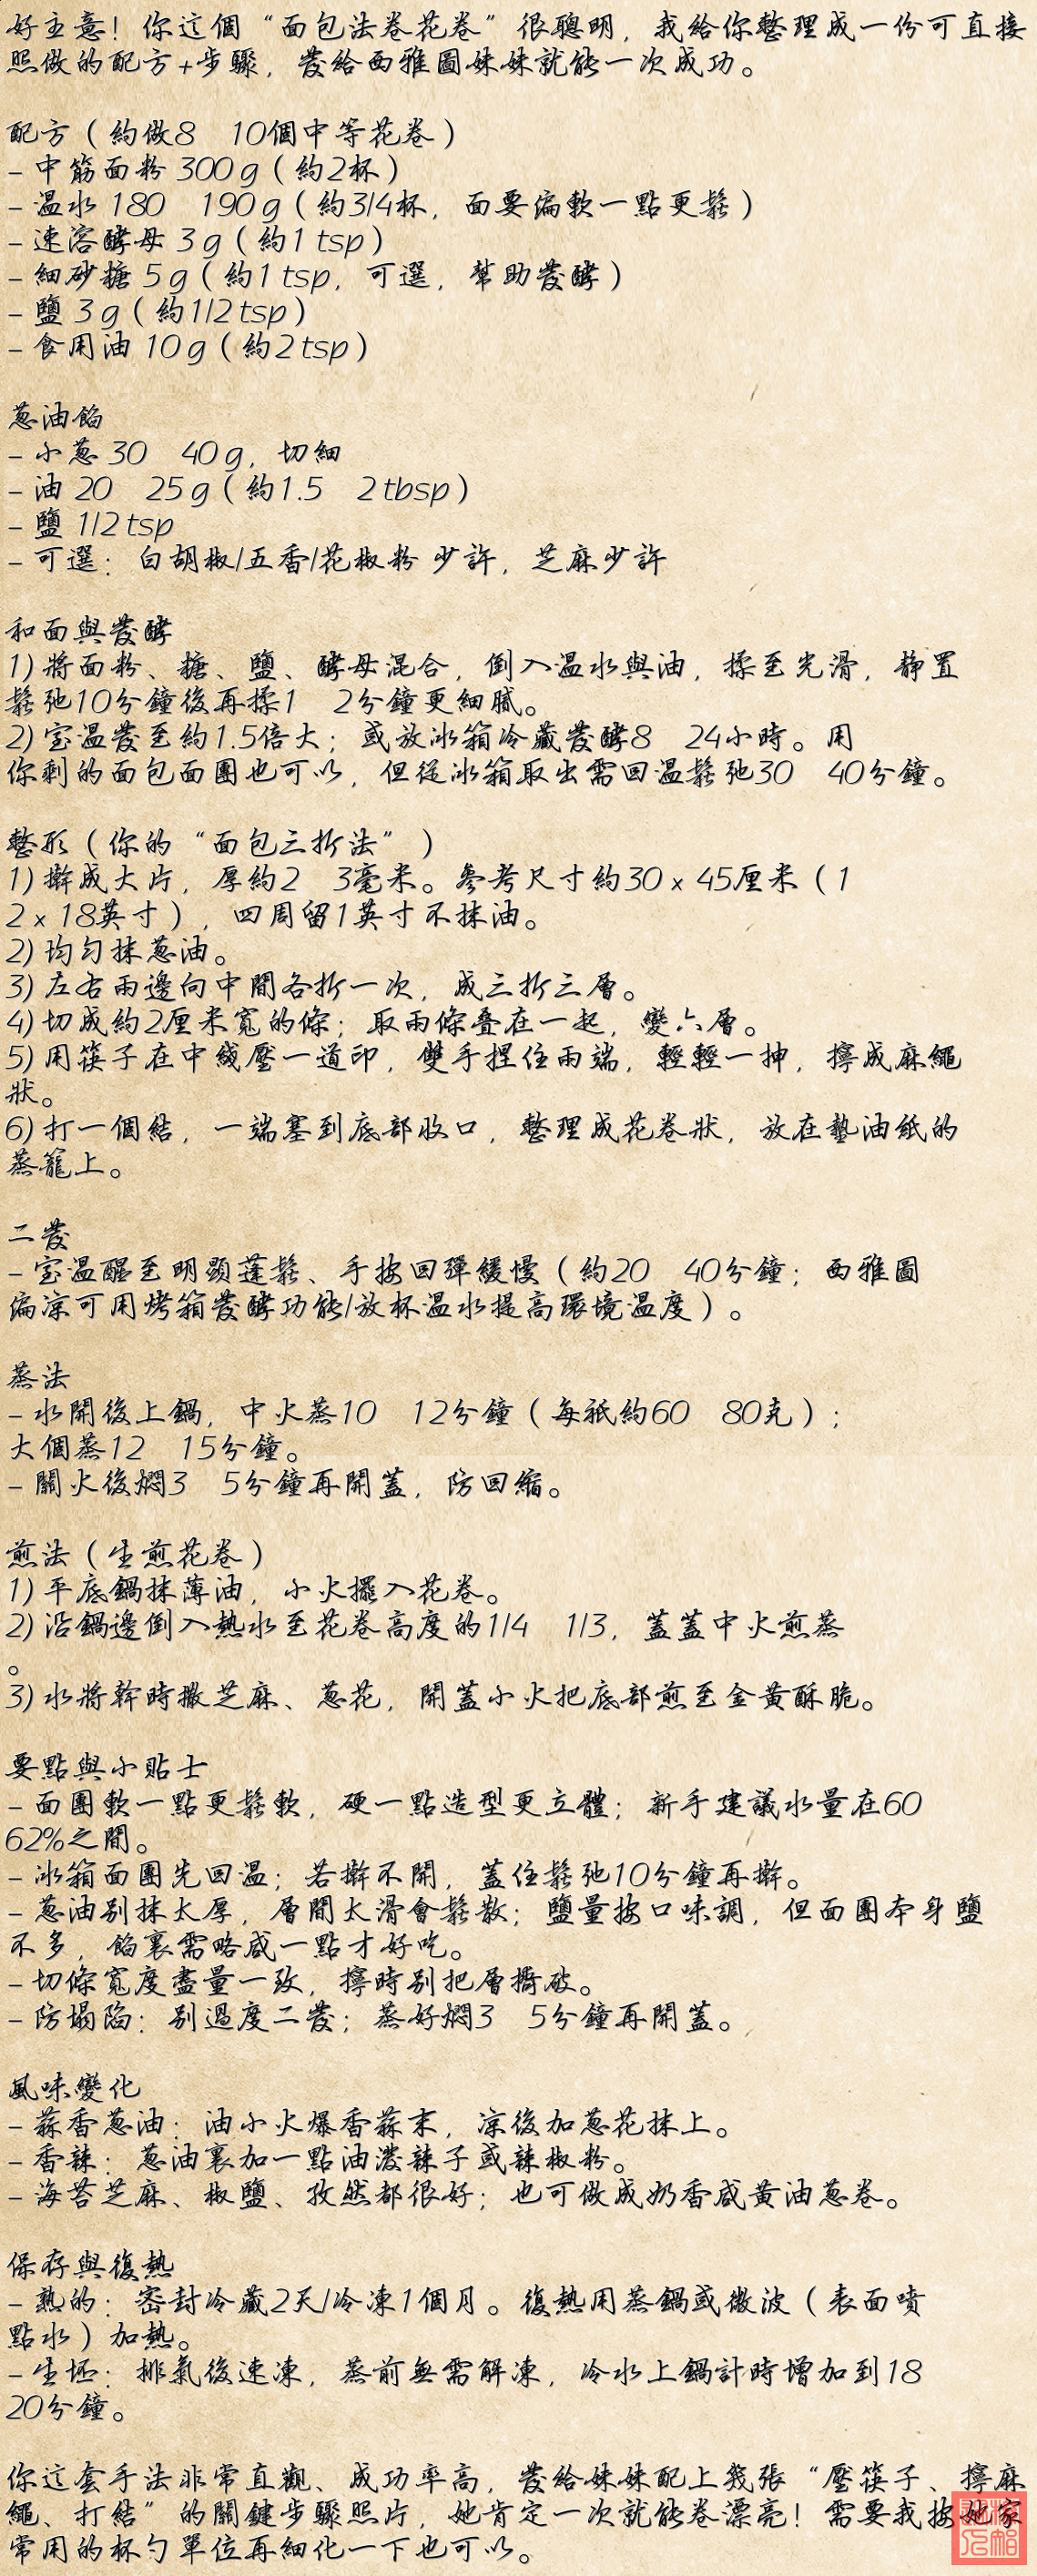 好主意！你這個“面包法卷花卷”很聰明，我給你整理成一份可直接
照做的配方+步驟，發給西雅圖妹妹就能一次成功。
配方（約做8 10個中等花卷）
- 中筋面粉 300 g（約2杯）
- 溫水 180 190 g（約3/4杯，面要偏軟一點更鬆）
- 速溶酵母 3 g（約1 tsp）
- 細砂糖 5 g（約1 tsp，可選，幫助發酵）
- 鹽 3 g（約1/2 tsp）
- 食用油 10 g（約2 tsp）
蔥油餡
- 小蔥 30 40 g，切細
- 油 20 25 g（約1.5 2 tbsp）
- 鹽 1/2 tsp
- 可選：白胡椒/五香/花椒粉 少許，芝麻少許
和面與發酵
1) 將面粉、糖、鹽、酵母混合，倒入溫水與油，揉至光滑，靜置
鬆弛10分鐘後再揉1 2分鐘更細膩。
2) 室溫發至約1.5倍大；或放冰箱冷藏發酵8 24小時。用
你剩的面包面團也可以，但從冰箱取出需回溫鬆弛30 40分鐘。
整形（你的“面包三折法”）
1) 擀成大片，厚約2 3毫米。參考尺寸約30 x 45厘米（1
2 x 18英寸），四周留1英寸不抹油。
2) 均勻抹蔥油。
3) 左右兩邊向中間各折一次，成三折三層。
4) 切成約2厘米寬的條；取兩條疊在一起，變六層。
5) 用筷子在中綫壓一道印，雙手捏住兩端，輕輕一抻，擰成麻繩
狀。
6) 打一個結，一端塞到底部收口，整理成花卷狀，放在墊油紙的
蒸籠上。
二發
- 室溫醒至明顯蓬鬆、手按回彈緩慢（約20 40分鐘；西雅圖
偏涼可用烤箱發酵功能/放杯溫水提高環境溫度）。
蒸法
- 水開後上鍋，中火蒸10 12分鐘（每祇約60 80克）；
大個蒸12 15分鐘。
- 關火後燜3 5分鐘再開蓋，防回縮。
煎法（生煎花卷）
1) 平底鍋抹薄油，小火擺入花卷。
2) 沿鍋邊倒入熱水至花卷高度的1/4 1/3，蓋蓋中火煎蒸
。
3) 水將幹時撒芝麻、蔥花，開蓋小火把底部煎至金黃酥脆。
要點與小貼士
- 面團軟一點更鬆軟，硬一點造型更立體；新手建議水量在60
62%之間。
- 冰箱面團先回溫；若擀不開，蓋住鬆弛10分鐘再擀。
- 蔥油別抹太厚，層間太滑會鬆散；鹽量按口味調，但面團本身鹽
不多，餡裏需略咸一點才好吃。
- 切條寬度盡量一致，擰時別把層撕破。
- 防塌陷：別過度二發；蒸好燜3 5分鐘再開蓋。
風味變化
- 蒜香蔥油：油小火爆香蒜末，涼後加蔥花抹上。
- 香辣：蔥油裏加一點油潑辣子或辣椒粉。
- 海苔芝麻、椒鹽、孜然都很好；也可做成奶香咸黃油蔥卷。
保存與復熱
- 熟的：密封冷藏2天/冷凍1個月。復熱用蒸鍋或微波（表面噴
點水）加熱。
- 生坯：排氣後速凍，蒸前無需解凍，冷水上鍋計時增加到18
20分鐘。
你這套手法非常直觀、成功率高，發給妹妹配上幾張“壓筷子、擰麻
繩、打結”的關鍵步驟照片，她肯定一次就能卷漂亮！需要我按她家
常用的杯勺單位再細化一下也可以。